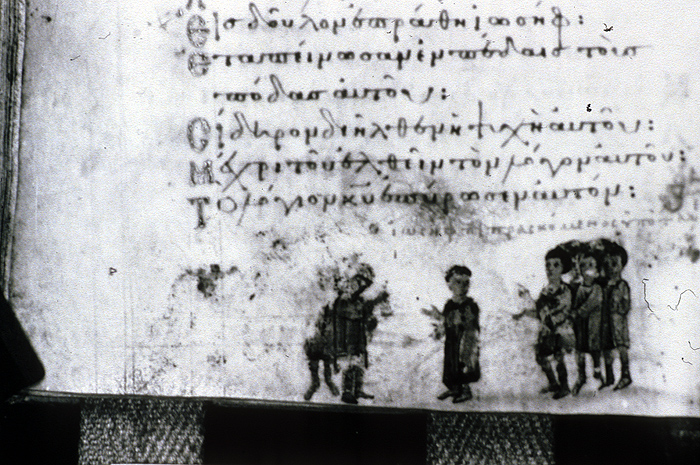 Εἰς δοῦλον ἐπράθη ἰωσήφ:
Ἐταπείνωσαν ἐν πέδαις τοὺς
πόδας αὐτοῦ:
Σίδηρον διῆλθεν ἡ ψυχὴ αὐτοῦ:
Μέχρι τοῦ ἐλθεῖν τὸν λόγον αὐτοῦ:
Τὸ λόγιον κῦ ἐπύρωσεν αὐτόν:
ὁ ἰωσὴφ πιπρασκόμενος ὑπὸ